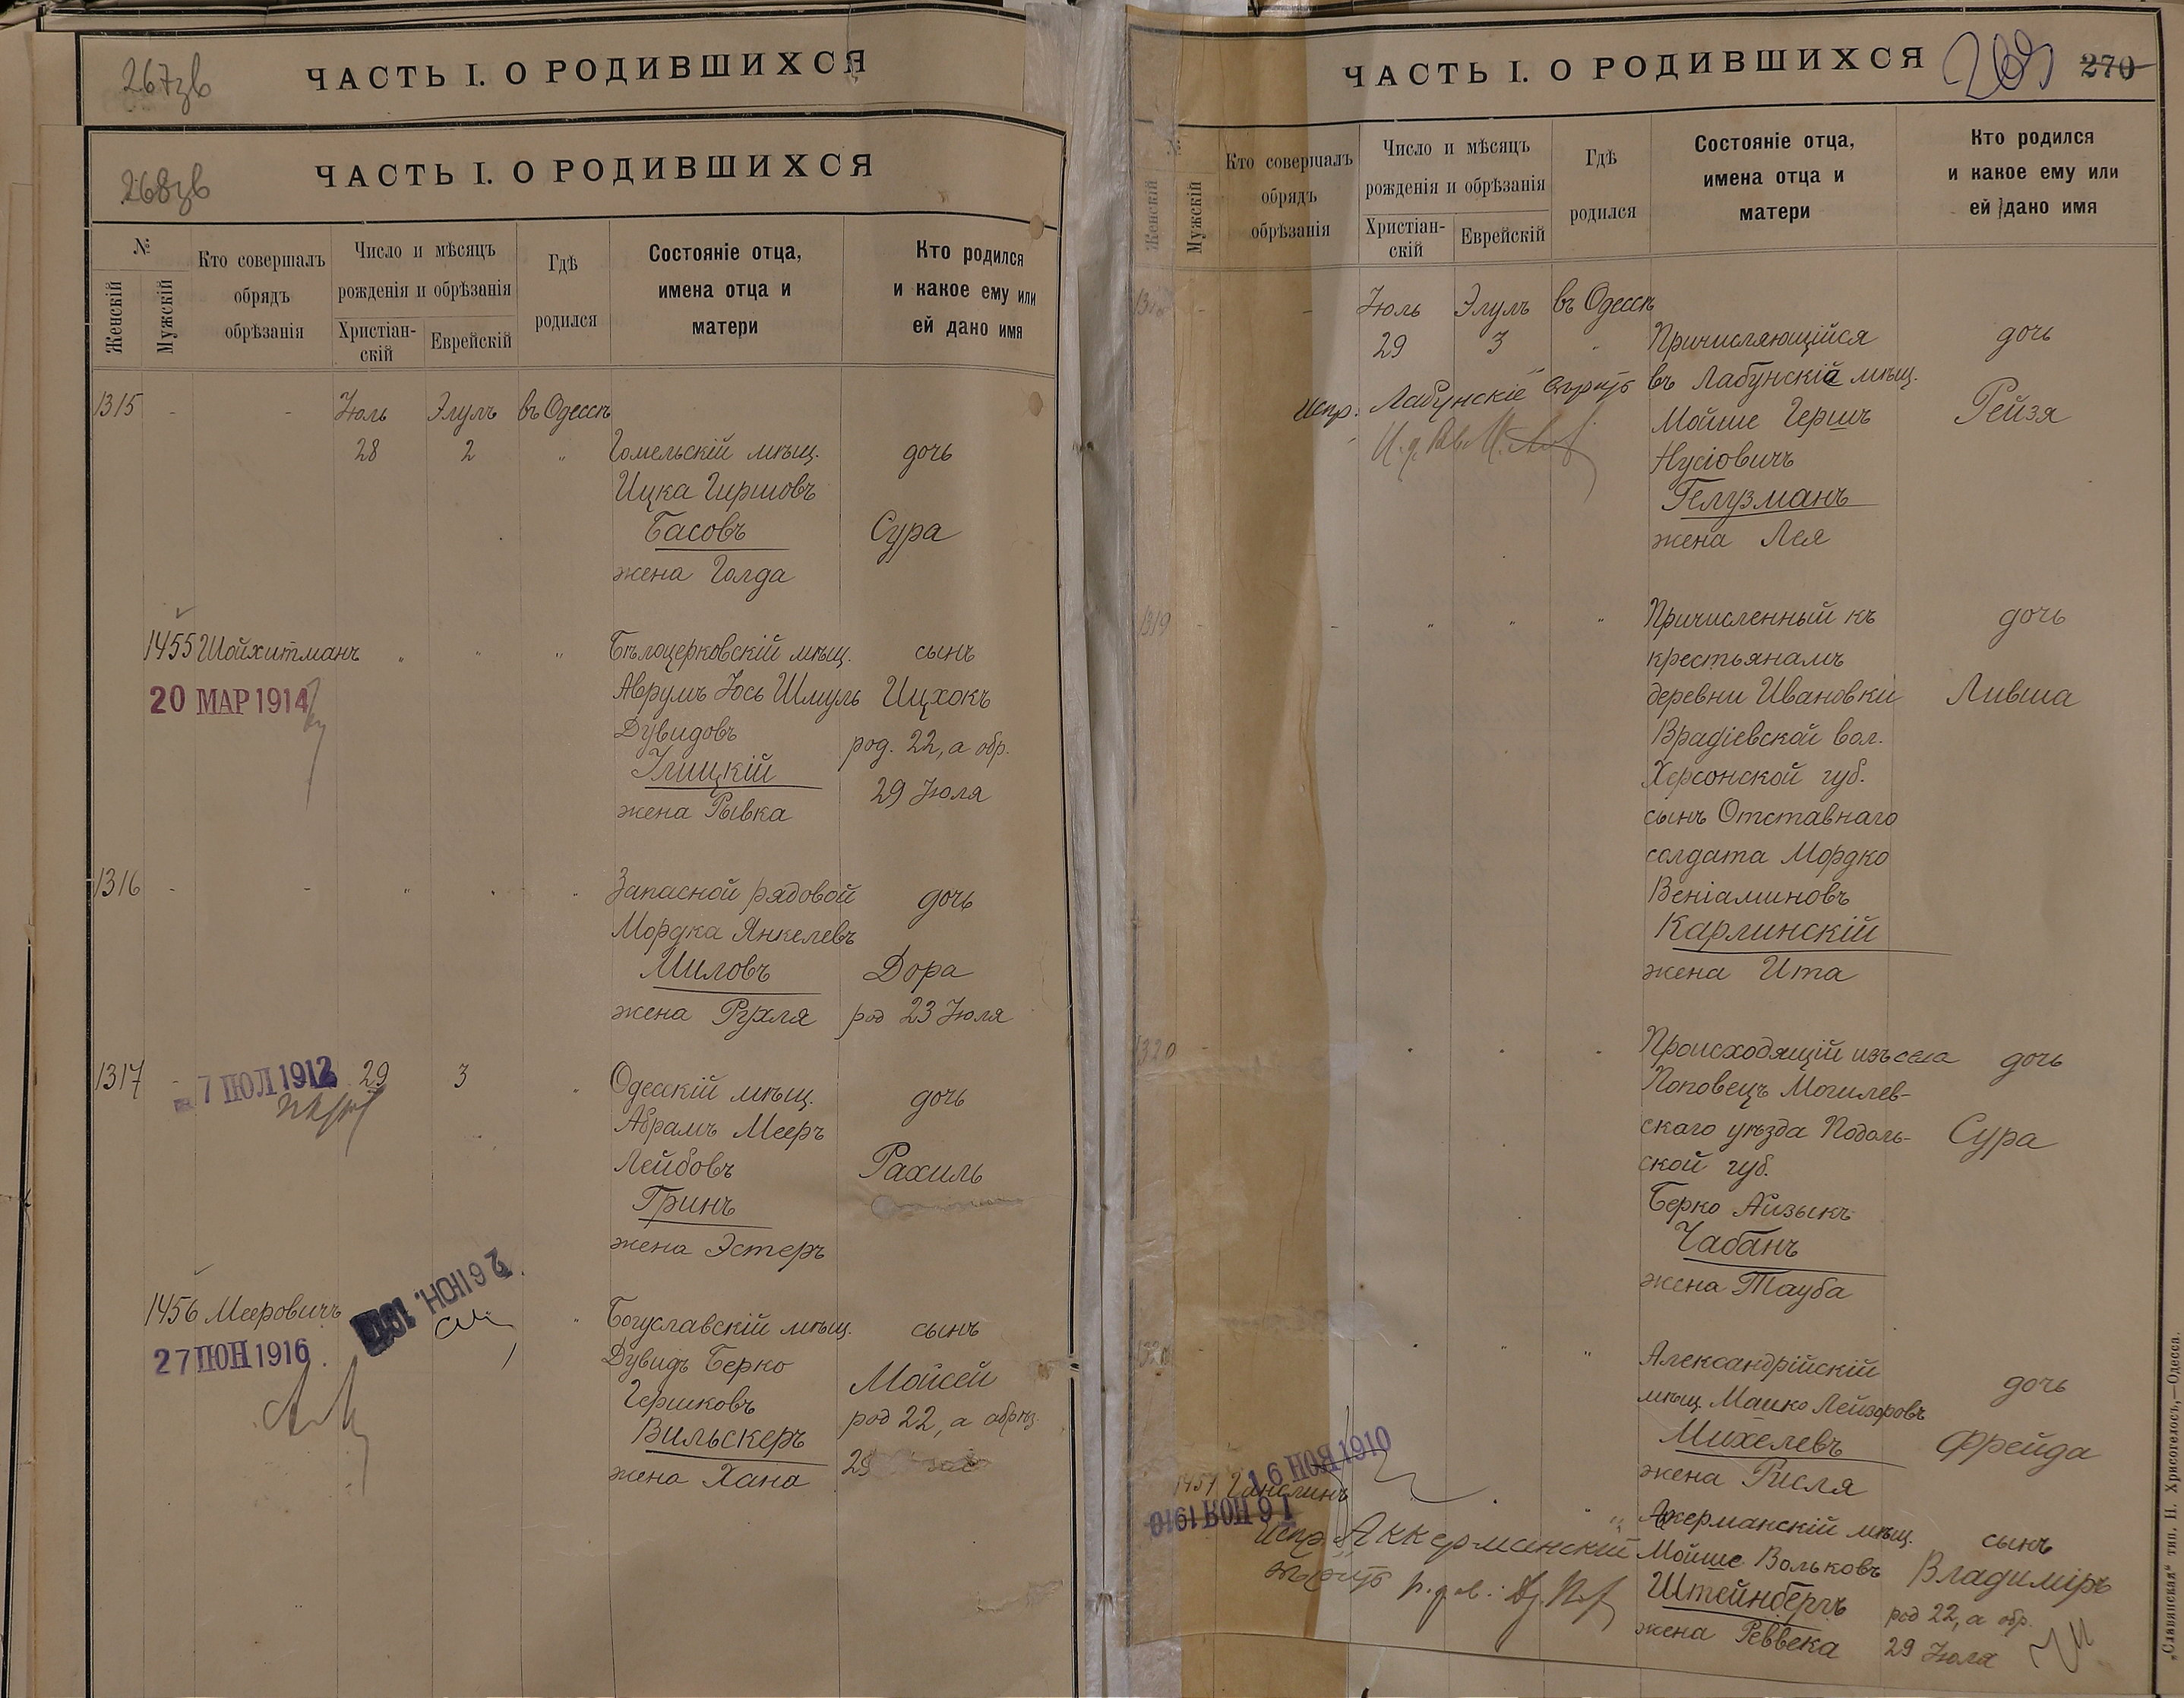 267зв
ЧАСТЬ I. О РОДИВШИХСЯ
268зв
ЧАСТЬ I. О РОДИВШИХСЯ
№
Женскій
Мужскій
Кто совершалъ
обрядъ
обрѣзанія
Число и мѣсяцъ
рожденія и обрѣзанія
Христіан-
скій
Еврейскій
Гдѣ
родился
Состояніе отца,
имена отца и
матери
Кто родился
и какое ему или
ей дано имя
1315 - - Іюль Элулъ въ Одессѣ
28 2 " Гомельскій мѣщ. дочь
Ицка Гиршовъ
Басовъ Сура
жена Голда
1455 Шойхитманъ " " " Бѣлоцерковскій мѣщ. сынъ
20 МАР 1914 Аврумъ Іось Шмуль Ицхокъ
Дувидовъ род. 22, а обр.
Улицкій 29 Іюля
жена Рывка
1316 - - " " " Запасной рядовой дочь
Мордка Янкелевъ
Миловъ Дора
жена Рухля род 23 Іюля
1317 - 7 ІЮЛ 1912 29 3 " Одесскій мѣщ. дочь
Абрамъ Мееръ
Лейбовъ Рахиль
Гринъ
жена Эстеръ
26 ІЮН.
1456 Мееровичъ " Богуславскій мѣщ. сынъ
27 ІЮН 1916 Дувидъ Берко Мойсей
Гершковъ род 22, а обрѣз.
Вильскеръ 29
жена Хана
ЧАСТЬ I. О РОДИВШИХСЯ 269 270
№
Женскій
Мужскій
Кто совершалъ
обрядъ
обрѣзанія
Число и мѣсяцъ
рожденія и обрѣзанія
Христіан-
скій
Еврейскій
Гдѣ
родился
Состояніе отца,
имена отца и
матери
Кто родился
и какое ему или
ей дано имя
1318 - - Іюль Элулъ въ Одессѣ
29 3 " Причисляющійся дочь
въ Лабунскій мѣщ.
Испр. Лабунскіе вѣрить
Мойше Гершъ Рейзя
Нусіовичъ
Гелузманъ
жена Лея
1319 - - " " " Причисленный къ дочь
крестьянамъ
деревни Ивановки Ливша
Врадіевской вол.
Херсонской губ.
сынъ Отставнаго
солдата Мордко
Веніаминовъ
Карлинскій
жена Ита
1320 - " " " Происходящій изъ села дочь
Поповецъ Могилев-
скаго уѣзда Подоль- Сура
ской губ.
Берко Айзыкъ
Чабанъ
жена Тауба
1321 - " " " Александрійскій дочь
мѣщ. Машко Лейзоровъ
Михелевъ Фрейда
жена Рисля
16 НОЯ 1910
1457 " Акерманскій мѣщ. сынъ
16 НОЯ 1910
Испр. Аккерманскій Мойше Вольковъ Владиміръ
вѣрить Штейнбергъ род 22, а обр.
жена Реввека 29 Іюля
„Славянская“ тип. Н. Хрисогелосъ,—Одесса.